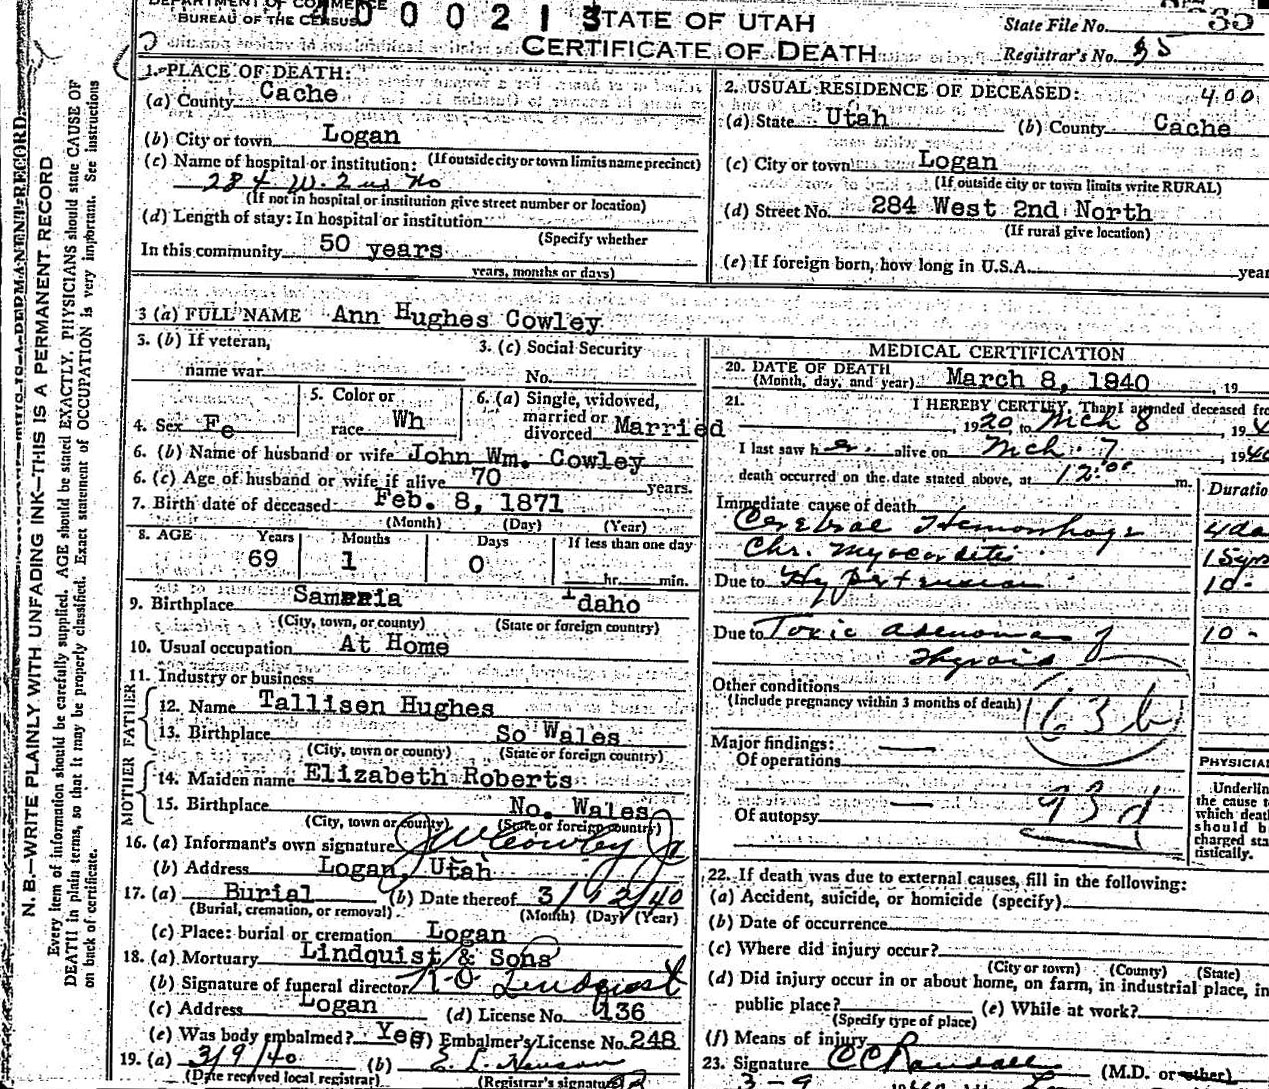 DEPARTMENT OF COMMERCE
BUREAU OF THE CENSUS
000213
STATE OF UTAH
CERTIFICATE OF DEATH
State File No. 35
Registrar's No. 35
1. PLACE OF DEATH:
(a) County Cache
(b) City or town Logan
(c) Name of hospital or institution: (If outside city or town limits name precinct)
284 W. 2nd No
(If not in hospital or institution give street number or location)
(d) Length of stay: In hospital or institution
(Specify whether
In this community 50 years
years, months or days)
2. USUAL RESIDENCE OF DECEASED: 400
(a) State Utah (b) County Cache
(c) City or town Logan
(If outside city or town limits write RURAL)
(d) Street No. 284 West 2nd North
(If rural give location)
(e) If foreign born, how long in U.S.A. year
3 (a) FULL NAME Ann Hughes Cowley
3. (b) If veteran,
name war
3. (c) Social Security
No.
4. Sex Fe
5. Color or
race Wh
6. (a) Single, widowed,
married or
divorced Married
6. (b) Name of husband or wife John Wm. Cowley
6. (c) Age of husband or wife if alive 70 years.
7. Birth date of deceased Feb. 8, 1871
(Month) (Day) (Year)
8. AGE Years Months Days If less than one day
69 1 0 hr. min.
9. Birthplace Samaria Idaho
(City, town, or county) (State or foreign country)
10. Usual occupation At Home
11. Industry or business
FATHER
12. Name Tallisen Hughes
13. Birthplace So Wales
(City, town or county) (State or foreign country)
MOTHER
14. Maiden name Elizabeth Roberts
15. Birthplace No. Wales
(City, town or county) (State or foreign country)
16. (a) Informant's own signature J W Cowley Jr
(b) Address Logan, Utah
17. (a) Burial (b) Date thereof 3/12/40
(Burial, cremation, or removal) (Month) (Day) (Year)
(c) Place: burial or cremation Logan
18. (a) Mortuary Lindquist & Sons
(b) Signature of funeral director R O Lindquist
(c) Address Logan (d) License No. 136
(e) Was body embalmed? Yes (f) Embalmer's License No. 248
19. (a) 3/9/40 (b)
(Date received local registrar) (Registrar's signature)
MEDICAL CERTIFICATION
20. DATE OF DEATH
(Month, day, and year) March 8, 1940, 19
21. I HEREBY CERTIFY, That I attended deceased fro
, 1920, to Mch 8, 194
I last saw her alive on Mch 7, 1940
death occurred on the date stated above, at 12:00 m.
Duratio
Immediate cause of death
Cerebral Hemorrhage 4 da
Chr. Myocarditis 15 yrs
Due to Hypertension 10 -
Due to Toxic adenoma of 10 -
Thyroid
Other conditions
(Include pregnancy within 3 months of death)
63b
Major findings:
Of operations
93d
Of autopsy
PHYSICIAN
Underlin
the cause t
which deat
should b
charged sta
tistically.
22. If death was due to external causes, fill in the following:
(a) Accident, suicide, or homicide (specify)
(b) Date of occurrence
(c) Where did injury occur?
(City or town) (County) (State)
(d) Did injury occur in or about home, on farm, in industrial place, in
public place? (e) While at work?
(Specify type of place)
(f) Means of injury
23. Signature (M.D. or other)
3-9
N. B.—WRITE PLAINLY WITH UNFADING INK—THIS IS A PERMANENT RECORD
Every item of information should be carefully supplied. AGE should be stated EXACTLY. PHYSICIANS should state CAUSE OF
DEATH in plain terms, so that it may be properly classified. Exact statement of OCCUPATION is very important. See instructions
on back of certificate.